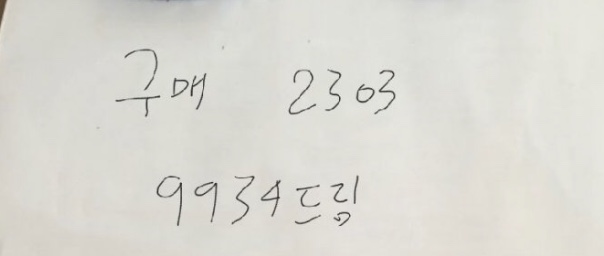 구매 2303
9934드림